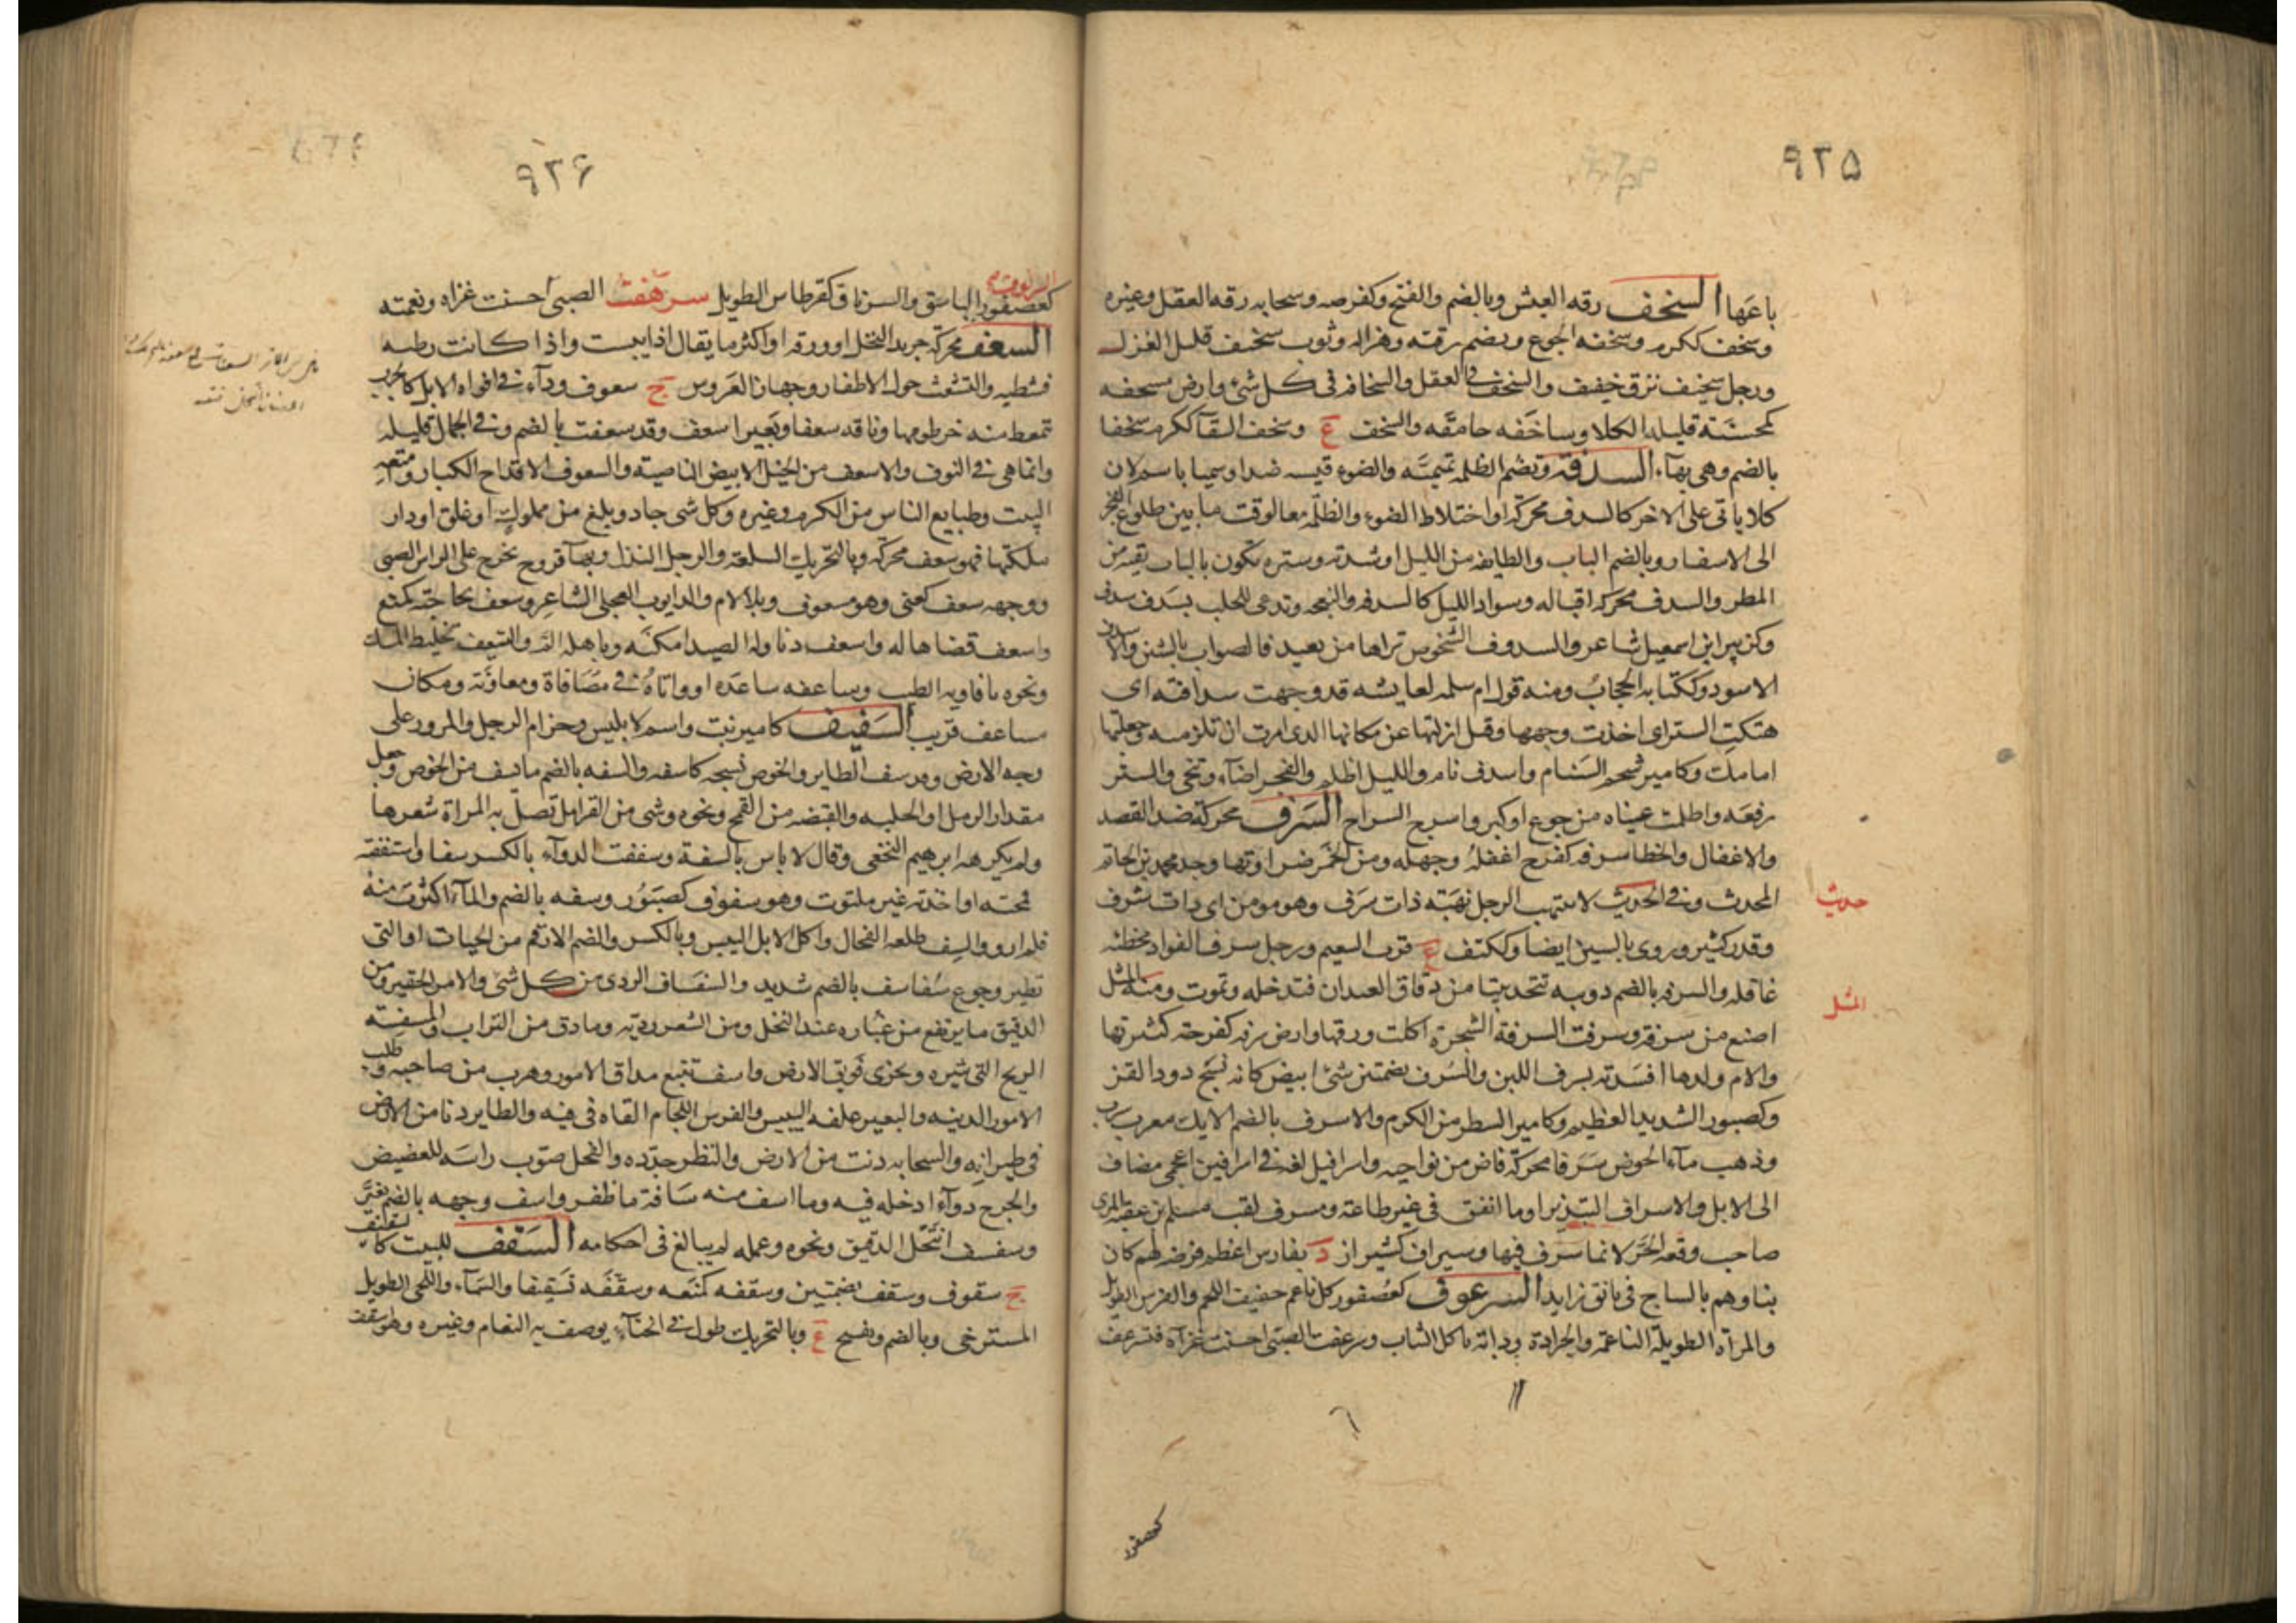 ٩٢٥
باعها السخف رقه العيش وبالضم والفتح وكقرصه وسحابه رقه العقل وغيره
وسخف ككرم وسخفه الجوع ويضم رقته وهزاله وثوب سخيف قليل الغزل
ورجل سخيف نزق خفيف والسخف في العقل والسخافه في كل شئ وارض مسخفه
كمحسنة قليله الكلا وساخفه حامقه والسخف ع وسخف السقآ ككرم سخفا
بالضم وهى بهآء السدفه وتضم الظلمه تميميّه والضوء قيسيه ضد او سميا باسم لان
كلا ياتى على الاخر كالسدف محركه او اختلاط الضوء والظلمه معا لوقت ما بين طلوع الفجر
الى الاسفار وبالضم الباب والطايفه من الليل او شدته وستره تكون بالباب تقيه من
المطر والسدف محركه اقباله وسواد الليل كالسدفه والنعجه وتدعى للحلب بسدف سدف
وكزبير ابن اسمعيل شاعر والسدوف الشخوص تراها من بعيد فالصواب بالشين والاسدف
الاسود وككتابه الحجاب ومنه قول ام سلمه لعايشه قد وجهت سدافته اى
هتكت الستر اى اخذت وجهها وقيل ازلتها عن مكانها الذى امرت ان تلزميه وجعلتها
امامك وكامير شحم السنام واسدف نام والليل اظلم والفجر اضآء وتنحى والستر
رفعه واظلمت عيناه من جوع او كبر واسرج السراج السرف محركة ضد القصد
والاغفال والخطا سرفه كفرح اغفله وجهله ومن الخمر ضراوتها وجد محمد بن حاتم
المحدث وفي الحديث لا ينتهب الرجل نهبة ذات سرف وهو مومن اى ذات شرف
وقدر كثير وروى بالسين ايضا وككتف ع قرب التنعيم ورجل سرف الفواد مخطئه
غافله والسرفه بالضم دويبه تتخذ بيتا من دقاق العيدان فتدخله وتموت ومنه المثل
اصنع من سرفه وسرفت السرفة الشجرة اكلت ورقها وارض سرفه كفرحه كثيرتها
والام ولدها افسدته بسرف اللبن والسرف بضمتين شئ ابيض كانه نسج دود القز
وكصبور الشديد العظيم وكامير السطر من الكرم والاسرف بالضم الانك معرب سرب
وذهب مآء الحوض سرفا محركه فاض من نواحيه واسرافيل لغه في اسرافين اعجمى مضاف
الى الايل والاسراف التبذير او ما انفق فى غير طاعة ومسرف لقب مسلم بن عقبه المرى
صاحب وقعه الحره لانه اسرف فيها وسيراف كشيراز د بفارس اعظم فرضه لهم كان
بناوهم بالساج فى تانق زايد السرعوف كعصفور كل ناعم خفيف اللحم والفرس الطويل
والمراه الطويله الناعمه والجرادة ودابة تاكل الثياب وسرعفت الصبى احسنت غذآه فتسرعف
حديث
المثل
كعصفور
٩٢٦
السرنوف
كعصفور الباشق والسرناف كقرطاس الطويل سرهفت الصبى احسنت غذاه ونعمته
السعف محركه جريد النخل او ورقه او اكثر ما يقال اذا يبست واذا كانت رطبه
فشطبه والتشعث حول الاظفار وجهاز العروس ج سعوف ودآء فى افواه الابل كالجرب
تتمعط منه خرطومها وناقه سعفا وبعير اسعف وقد سعفت بالضم وفي الجمال قليله
وانما هى فى النوق والاسعف من الخيل الابيض الناصية والسعوف الاقداح الكبار وامتعه
البيت وطبايع الناس من الكرم وغيره وكل شى جاد وبلغ من مملوك او علق او دار
ملكتها فهو سعف محركه وبالتحريك السلعة والرجل النذل وبهآ قروح تخرج على راس الصبى
ووجهه سعف كعنى وهو مسعوف وبلا لام والد ايوب العجلى الشاعر وسعف بحاجته كمنع
واسعف قضاها له واسعف دنا وله الصيد امكنه وباهله الم والتسعيف تخليط المسك
ونحوه بافاويه الطيب وساعفه ساعده او واتاه فى مصافاة ومعاونه ومكان
مساعف قريب السفيف كامير نبت واسم لابليس وحزام الرحل والمرور على
وجه الارض وقد سف الطاير والخوص نسجه كاسفه والسفه بالضم ما يسف من الخوص وجعل
مقدار الزبيل او الجلبه والقبضه من القمح ونحوه وشى من القرامل تصل به المراة شعرها
ولم يكرهه ابرهيم النخعى وقال لا باس بالسفة وسففت الدوآء بالكسر سفا واستففته
قمحته او اخذته غير ملتوت وهو سفوف كصبور وسفه بالضم والمآء اكثرت منه
فلم ارو والسف طلعه الفحال واكل الابل اليبيس وبالكسر والضم الارقم من الحيات او التى
تطير وجوع سفاسف بالضم شديد والسفساف الردى من كل شى والامر الحقير ومن
الدقيق ما يرتفع من غباره عند النخل ومن الشعر رديه وما دق من التراب والمسفسفه
الريح التى تثيره وتجرى فويق الارض واسف تتبع مداق الامور وهرب من صاحبه وطلب
الامور الدنيه والبعير علفه اليبيس والفرس اللجام القاه فى فيه والطاير دنا من الارض
فى طيرانه والسحابه دنت من الارض والنظر حدده والفحل صوب راسه للعضيض
والجرح دوآء ادخله فيه وما اسف منه سافة ما ظفر واسف وجهه بالضم تغير
وسفسف انتخل الدقيق ونحوه وعمله لم يبالغ فى احكامه السقف للبيت كالسقيف
ج سقوف وسقف بضمتين وسقفه كمنعه وسقفه تسقيفا والسمآء واللحى الطويل
المسترخى وبالضم ويفتح ع وبالتحريك طول فى انحنآء يوصف به النعام وغيره وهو اسقف